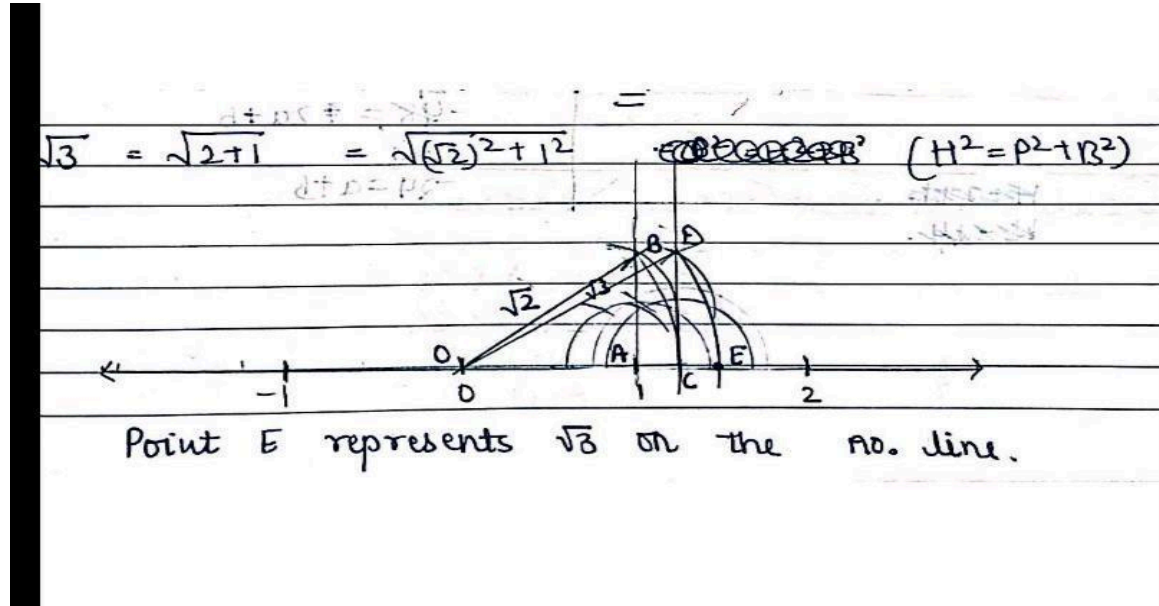 =
√3 = √2+1 = √(√2)²+1² (H²=P²+B²)
B D
√2 √3
O A E
-1 0 1 C 2
Point E represents √3 on the no. line.